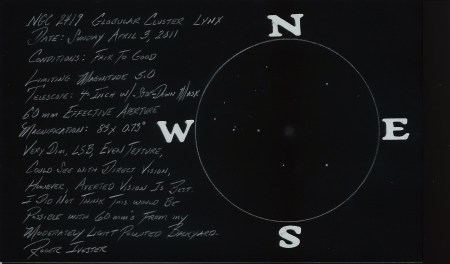 NGC 2419 Globular Cluster Lynx
Date: Sunday April 3, 2011
Conditions: Fair To Good
Limiting Magnitude 5.0
Telescope: 4-Inch w/-Stop-Down Mask
60mm Effective Aperture
Magnification: 83x 0.73°
Very Dim, LSB, Even Texture,
Could See with Direct Vision,
However, Averted Vision Is Best.
I Did Not Think This would Be
Possible with 60mm's From my
Moderately Light Polluted Backyard.
Roger Ivester
N
W
E
S